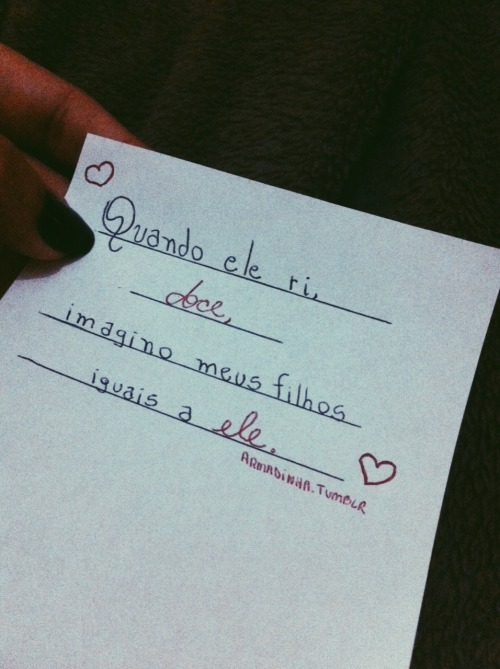 Quando ele ri,
doce,
imagino meus filhos
iguais a ele.
ARMADINHA.TUMBLR